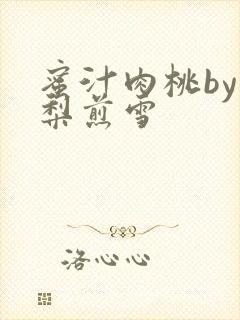 蜜汁肉桃by
梨煎雪
洛心心